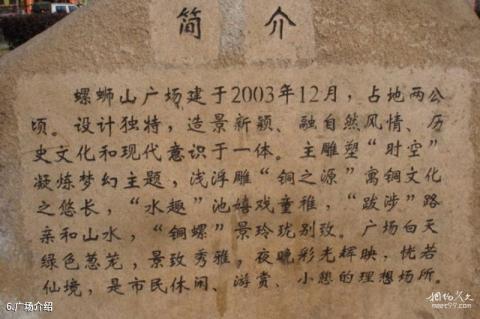 简介
螺蛳山广场建于2003年12月，占地两公
顷。设计独特，造景新颖、融自然风情、历
史文化和现代意识于一体。主雕塑“时空”
凝炼梦幻主题，浅浮雕“铜之源”寓铜文化
之悠长，“水趣”池嬉戏童稚，“跋涉”路
亲和山水，“铜螺”景玲珑别致。广场白天
绿色葱茏，景致秀雅。夜晚彩光辉映，恍若
仙境，是市民休闲、游赏、小憩的理想场所。
6.广场介绍
meet99.com